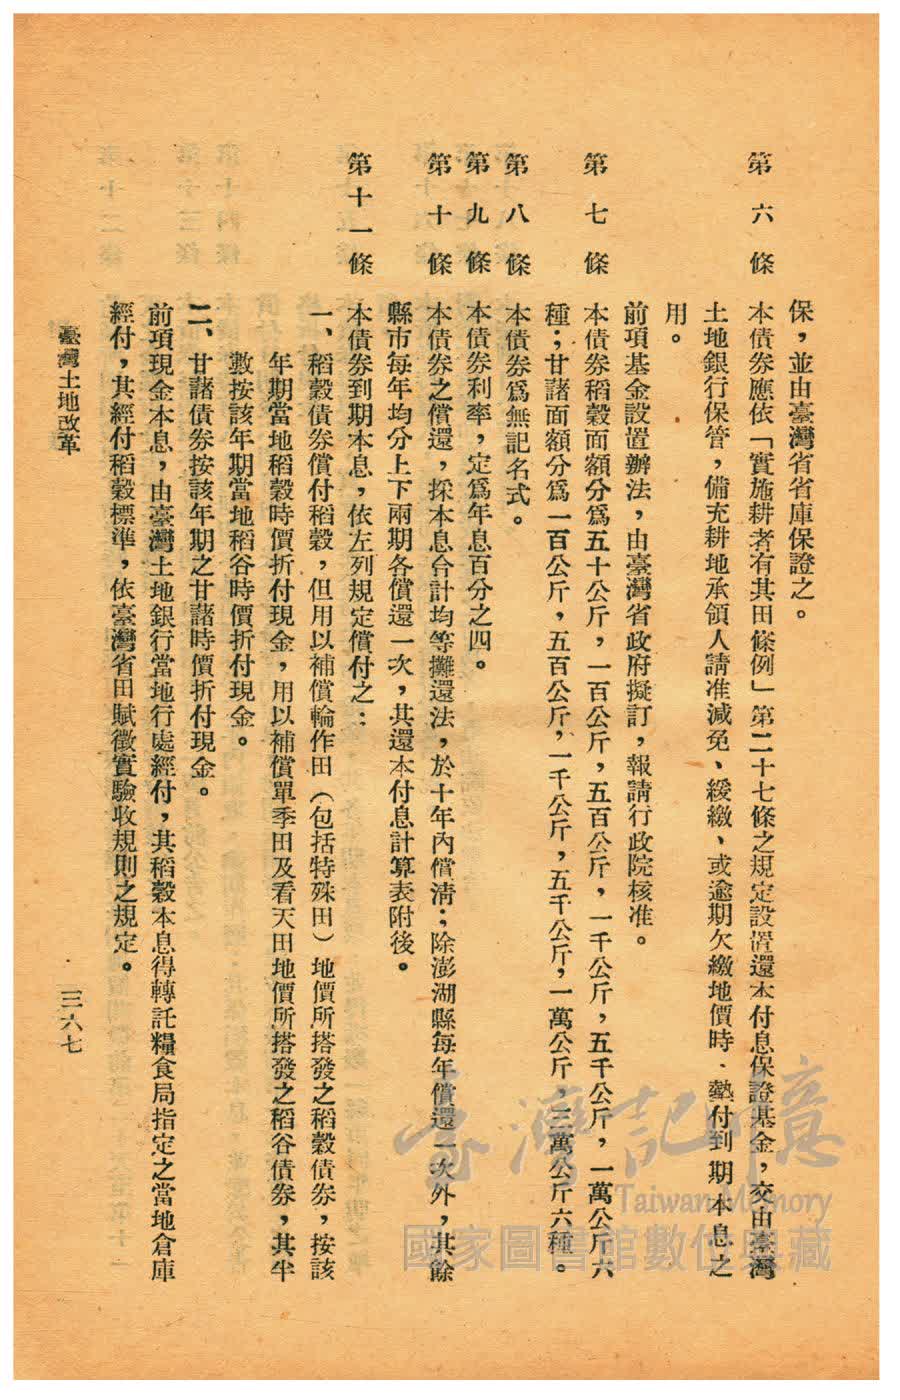 保，並由臺灣省省庫保證之。
第六條　本債券應依「實施耕者有其田條例」第二十七條之規定設置還本付息保證基金，交由臺灣
土地銀行保管，備充耕地承領人請准減免、緩繳、或逾期欠繳地價時．墊付到期本息之
用。
前項基金設置辦法，由臺灣省政府擬訂，報請行政院核准。
第七條　本債券稻穀面額分爲五十公斤，一百公斤，五百公斤，一千公斤，五千公斤，一萬公斤六
種；甘諸面額分爲一百公斤，五百公斤，一千公斤，五千公斤，一萬公斤，三萬公斤六種。
第八條　本債券爲無記名式。
第九條　本債券利率，定爲年息百分之四。
第十條　本債券之償還，採本息合計均等攤還法，於十年內償清；除澎湖縣每年償還一次外，其餘
縣市每年均分上下兩期各償還一次，其還本付息計算表附後。
第十一條　本債券到期本息，依左列規定償付之：
一、稻穀債券償付稻穀，但用以補償輪作田（包括特殊田）地價所搭發之稻穀債券，按該
年期當地稻穀時價折付現金，用以補償單季田及看天田地價所搭發之稻谷債券，其半
數按該年期當地稻谷時價折付現金。
二、甘諸債券按該年期之甘諸時價折付現金。
前項現金本息，由臺灣土地銀行當地行處經付，其稻穀本息得轉託糧食局指定之當地倉庫
經付，其經付稻穀標準，依臺灣省田賦徵實驗收規則之規定。
臺灣土地改革　三六七
臺灣記憶
Taiwan Memory
國家圖書館數位典藏